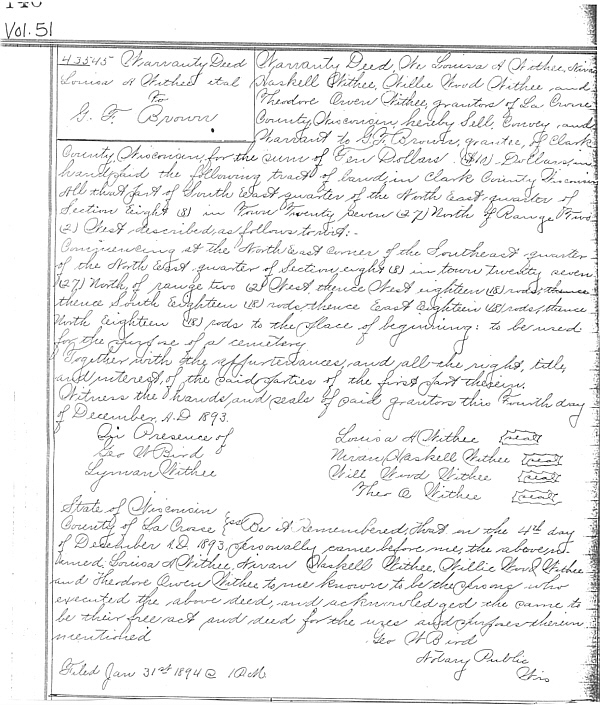 140
Vol. 51
43545 Warranty Deed
Louisa H Withee et al
to
G. F. Brown
Warranty Deed, We Louisa H Withee, Niran
Haskell Withee, Willie Wood Withee and
Theodore Owen Withee, grantors of La Crosse
County, Wisconsin, hereby Sell, Convey and
Warrant to G. F. Brown, grantee, of Clark
County, Wisconsin, for the sum of Ten Dollars ($10) Dollars in
hand paid the following tract of land, in Clark County, Wisconsin
All that part of South East quarter of the North East quarter of
Section Eight (8) in Town Twenty Seven (27) North of Range Two
(2) West described, as follows to wit:-
Commencing at the North East corner of the Southeast quarter
of the North East quarter of Section eight (8) in town twenty seven
(27) North, of range two (2) West thence West eighteen (18) rods, thence
thence South Eighteen (18) rods, thence East Eighteen (18) rods, thence
North Eighteen (18) rods to the place of beginning: to be used
for the purpose of a cemetery
Together with the appurtenances, and all the right, title,
and interest, of the said parties of the first part therein.
Witness the hands and seals of said grantors this Fourth day
of December, A.D 1893.
In Presence of
Geo W Bird
Lyman Withee
Louisa H Withee (seal)
Niran Haskell Withee (seal)
Will Wood Withee (seal)
Theo O Withee (seal)
State of Wisconsin
County of La Crosse } ss Be it remembered, that on the 4th day
of December A.D. 1893, personally came before me, the above
named, Louisa H Withee, Niran Haskell Withee, Willie Wood Withee
and Theodore Owen Withee to me known to be the persons who
executed the above deed, and acknowledged the same to
be their free act and deed for the uses and purposes therein
mentioned
Geo W Bird
Notary Public
Wis
Filed Jan 31st 1894 @ 1 P.M.